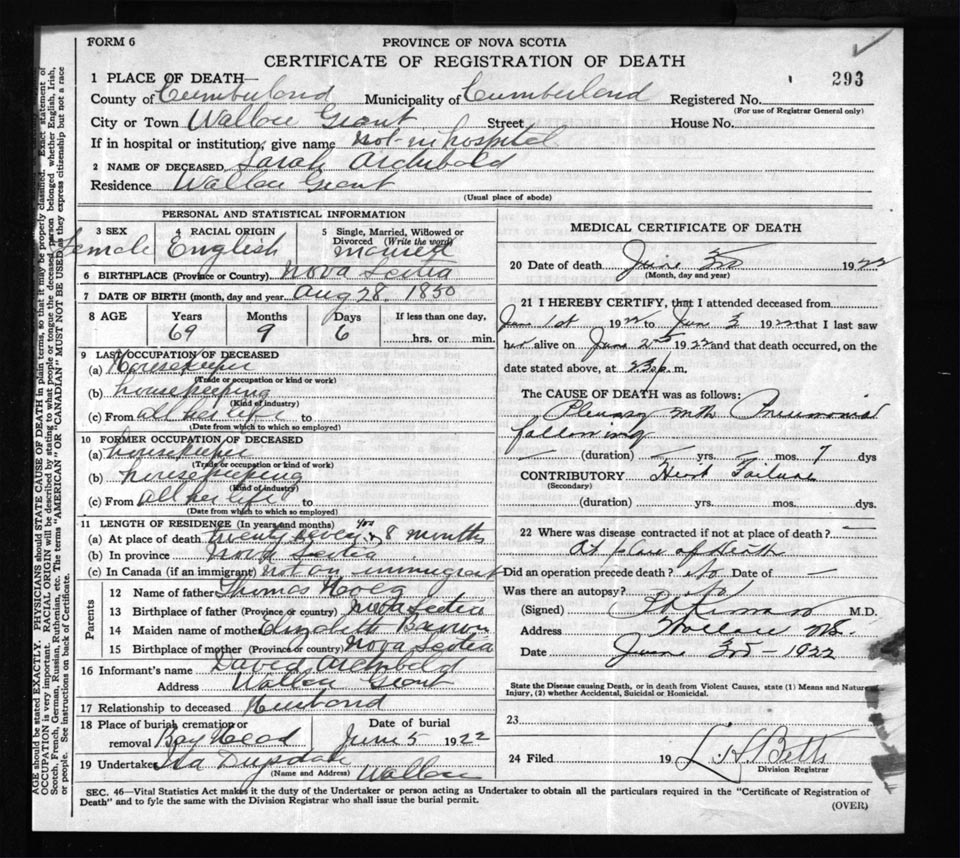 FORM 6
PROVINCE OF NOVA SCOTIA
CERTIFICATE OF REGISTRATION OF DEATH
293
1 PLACE OF DEATH—
County of Cumberland Municipality of Cumberland Registered No.
(For use of Registrar General only)
City or Town Wallace Grant Street House No.
If in hospital or institution, give name Not-in hospital
2 NAME OF DECEASED Sarah Archibald
Residence Wallace Grant
(Usual place of abode)
PERSONAL AND STATISTICAL INFORMATION
3 SEX 4 RACIAL ORIGIN 5 Single, Married, Widowed or Divorced (Write the word)
Female English married
6 BIRTHPLACE (Province or Country) Nova Scotia
7 DATE OF BIRTH (month, day and year) Aug 28. 1850
8 AGE Years Months Days If less than one day,
69 9 6 hrs. or min.
9 LAST OCCUPATION OF DECEASED
(a) Housekeeper
(Trade or occupation or kind or work)
(b) housekeeping
(Kind of industry)
(c) From all her life to
(Date from which to which so employed)
10 FORMER OCCUPATION OF DECEASED
(a) housekeeper
(Trade or occupation or kind of work)
(b) housekeeping
(Kind of industry)
(c) From all her life to
(Date from which to which so employed)
11 LENGTH OF RESIDENCE (In years and months)
(a) At place of death twenty seven yrs 8 months
(b) In province Nova Scotia
(c) In Canada (if an immigrant) not an immigrant
Parents
12 Name of father Thomas
13 Birthplace of father (Province or country) Nova Scotia
14 Maiden name of mother Elizabeth Brown
15 Birthplace of mother (Province or country) Nova Scotia
16 Informant's name David Archibald
Address Wallace Grant
17 Relationship to deceased Husband
18 Place of burial cremation or removal Bay Head Date of burial June 5 1922
19 Undertaker Wallace
(Name and Address)
MEDICAL CERTIFICATE OF DEATH
20 Date of death June 3rd 1922
(Month, day and year)
21 I HEREBY CERTIFY, that I attended deceased from
June 1st 1922 to June 3 1922 that I last saw
her alive on June 2nd 1922 and that death occurred, on the
date stated above, at m.
The CAUSE OF DEATH was as follows:
Pleurisy with Pneumonia
following
(duration) yrs. mos. 7 dys
CONTRIBUTORY Heart Failure
(Secondary)
(duration) yrs. mos. dys.
22 Where was disease contracted if not at place of death?
At place of death
Did an operation precede death? No Date of —
Was there an autopsy? No
(Signed) M.D.
Address Wallace N.S.
Date June 3rd – 1922
State the Disease causing Death, or in death from Violent Causes, state (1) Means and Nature
Injury, (2) whether Accidental, Suicidal or Homicidal.
23
24 Filed 19 L. H. Betts
Division Registrar
SEC. 46—Vital Statistics Act makes it the duty of the Undertaker or person acting as Undertaker to obtain all the particulars required in the "Certificate of Registration of
Death" and to fyle the same with the Division Registrar who shall issue the burial permit.
(OVER)
AGE should be stated EXACTLY. PHYSICIANS should STATE CAUSE OF DEATH in plain terms, so that it may be properly classified. Exact statement of
OCCUPATION is very important. RACIAL ORIGIN will be described by stating to what people or tongue the deceased person belonged whether English, Irish,
Scotch, French, German, Russian, Ruthenian, etc. The terms "AMERICAN" OR "CANADIAN" MUST NOT BE USED as they express citizenship but not a race
or people. See instructions on back of Certificate.